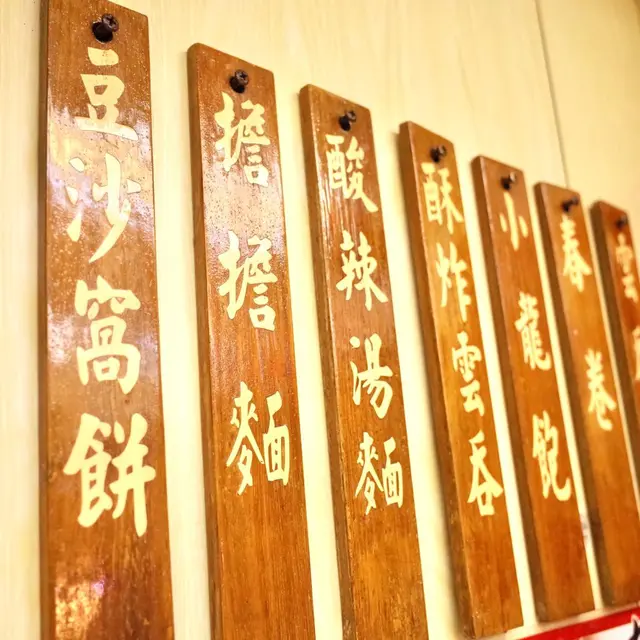 豆沙窩餅
擔擔麵
酸辣湯麵
酥炸雲吞
小龍飽
春卷
雲